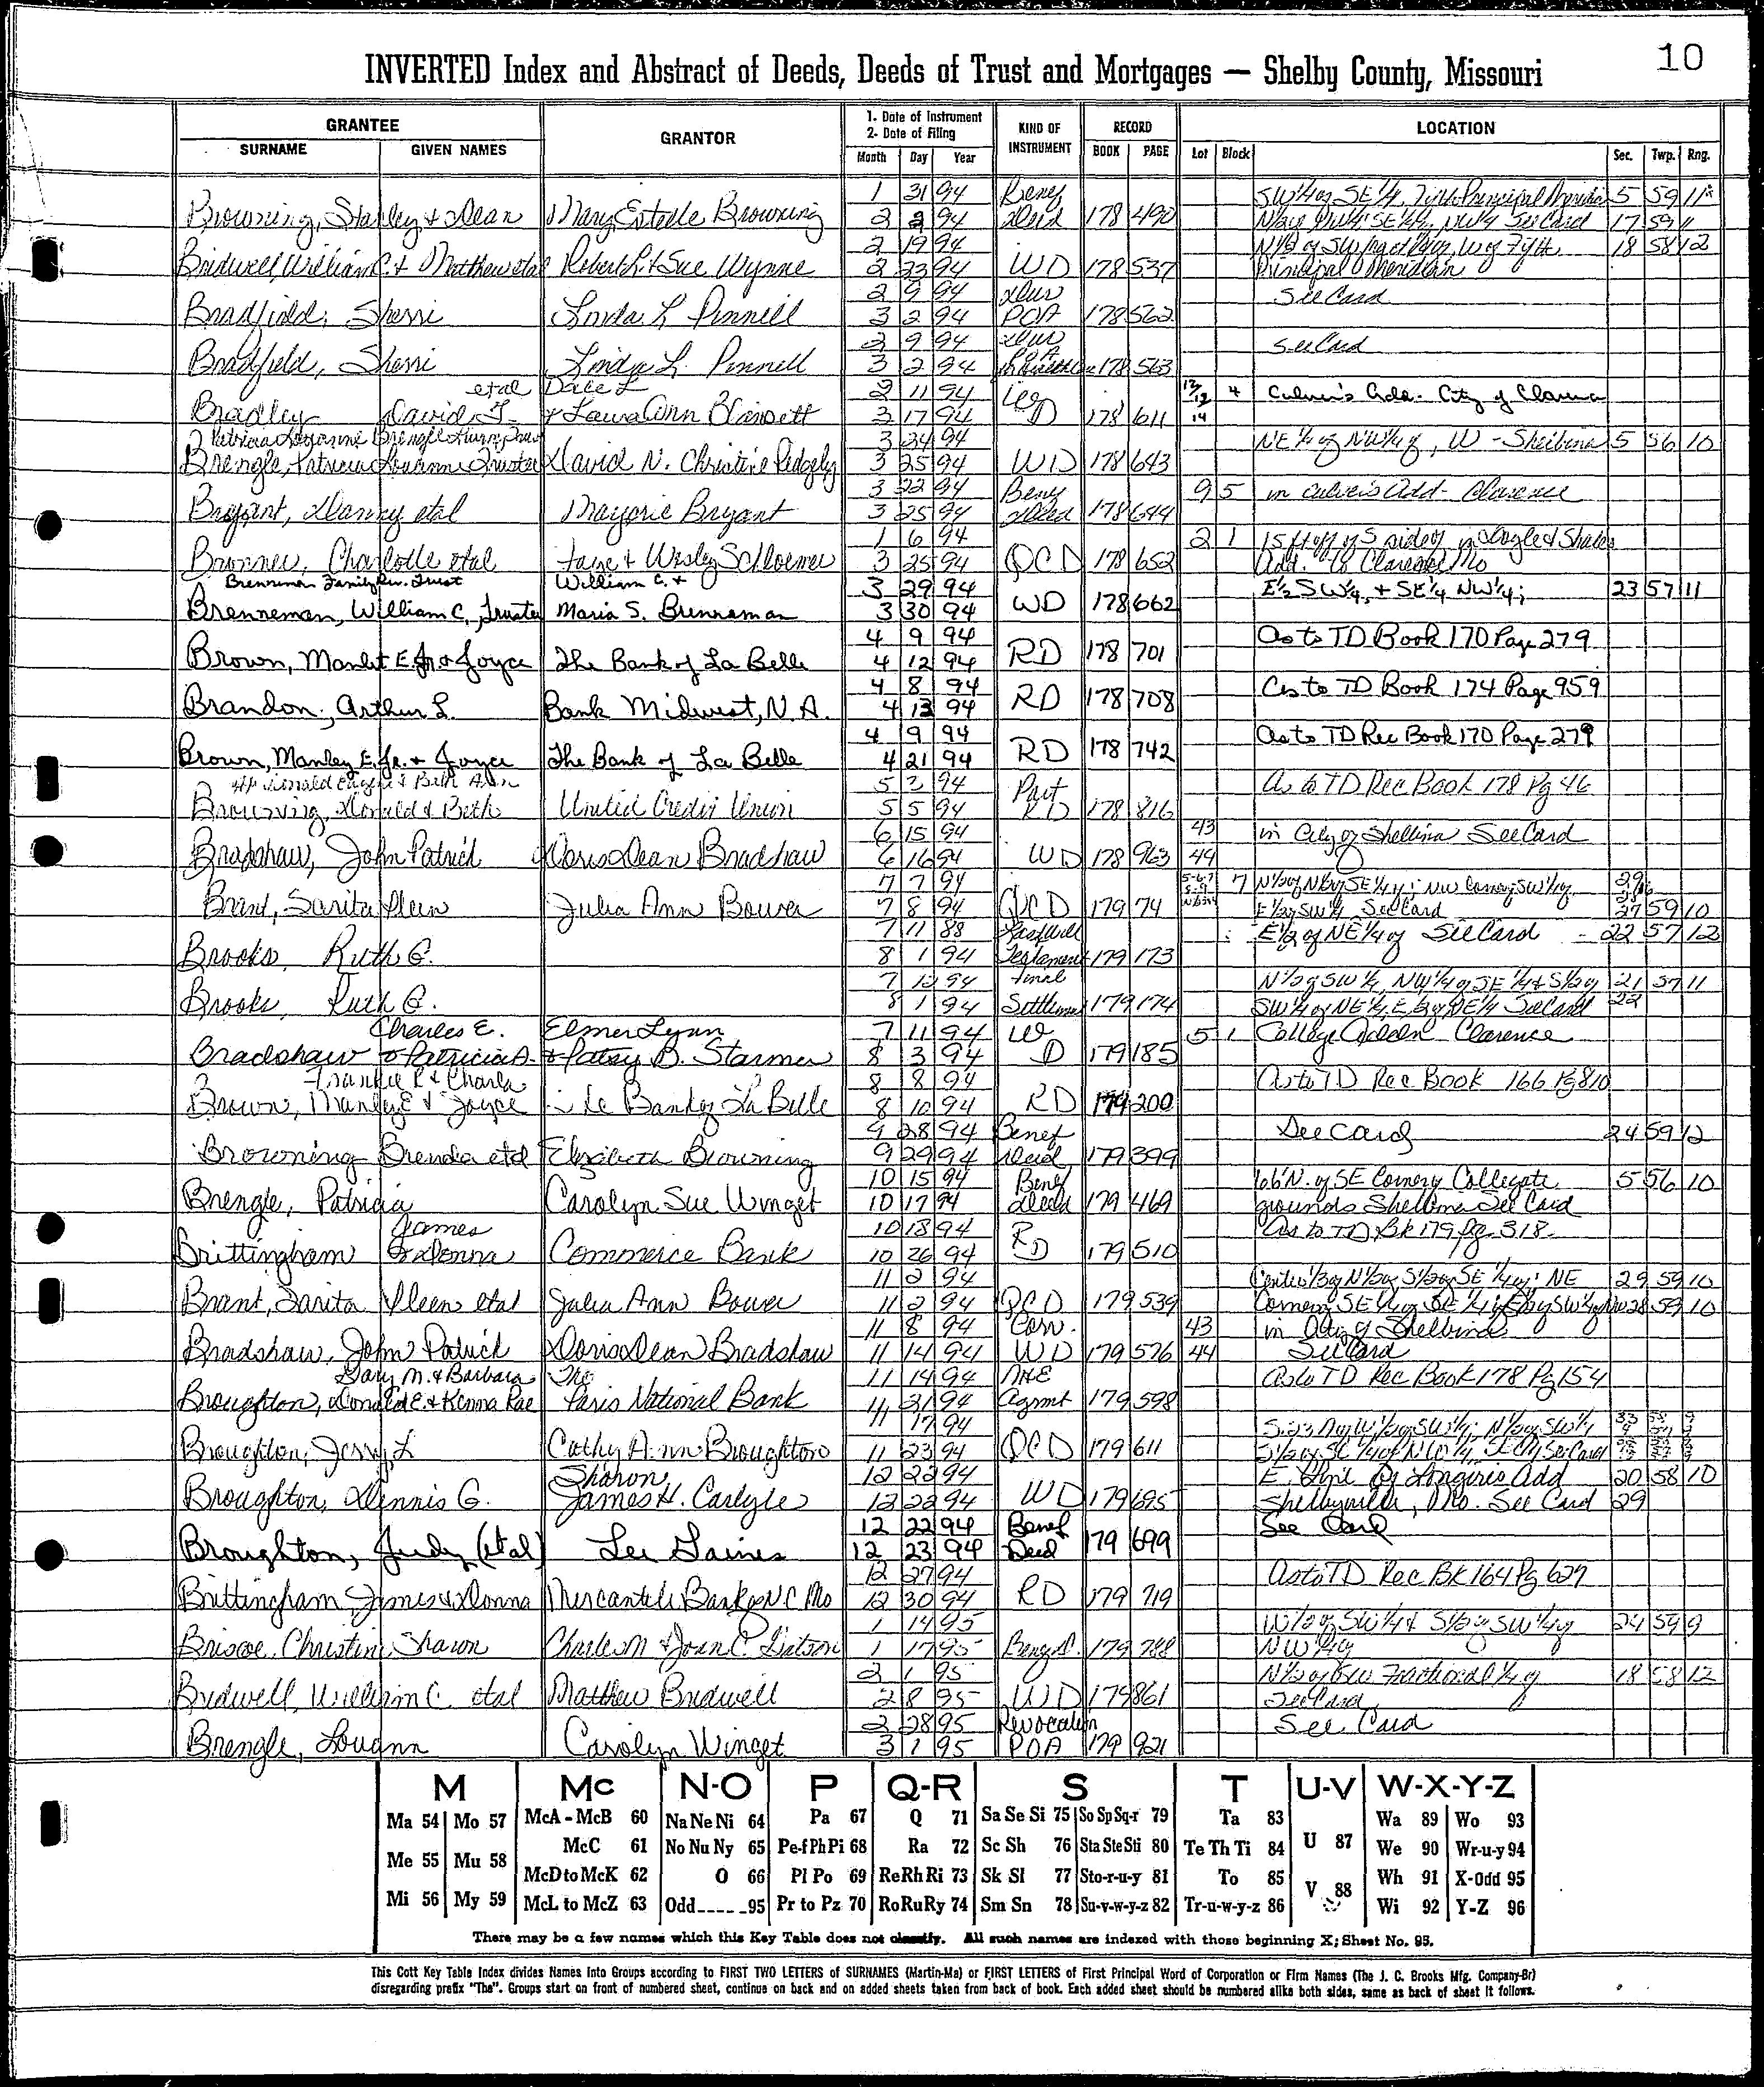 10
INVERTED Index and Abstract of Deeds, Deeds of Trust and Mortgages — Shelby County, Missouri
GRANTEE GRANTOR 1. Date of Instrument 2. Date of Filing KIND OF INSTRUMENT RECORD LOCATION
SURNAME GIVEN NAMES Month Day Year BOOK PAGE Lot Block Sec. Twp. Rng.
1 31 94 Benef SW¼ of SE¼, 5 59 11
Browning, Stanley & Dean Mary Estelle Browning 2 2 94 Deed 178 490 See Card 17 59 11
2 19 94 18 58 12
Bridwell, William C. & Matthew etal Robert L. & Sue Wynne 2 23 94 WD 178 537 Principal Meridian
2 9 94 Dur See Card
Bradfield, Sherri Linda L. Pinnell 3 2 94 POA 178 562
2 9 94 Dur See Card
Bradfield, Sherri Linda L. Pinnell 3 2 94 178 563
etal Dale L 2 11 94 4 Culver's Add. City of Clarence
Bradley David & Laura Ann 3 17 94 D 178 611 14
3 24 94 NE¼ of NW¼ of, W - Shelbina 5 56 10
Brengle, Patricia Louanne Trustee David N. Christine Ridgely 3 25 94 WD 178 643
3 22 94 Benef 9 5 in Culver's Add - Clarence
Bryant, Danny etal Marjorie Bryant 3 25 94 Deed 178 644
1 6 94 2 1 15 ft off of S side of
Charlotte etal Faye & Wesley Schloemer 3 25 94 QCD 178 652 Add. to Clarence Mo
Brenneman Family Rev. Trust William C. & 3 29 94 E½ SW¼, + SE¼ NW¼; 23 57 11
Brenneman, William C., Trustee Maria S. Brenneman 3 30 94 WD 178 662
4 9 94 As to TD Book 170 Page 279
Brown, Manley E. Jr. & Joyce The Bank of La Belle 4 12 94 RD 178 701
4 8 94 As to TD Book 174 Page 959
Brandon, Arthur L. Bank Midwest, N.A. 4 13 94 RD 178 708
4 9 94 As to TD Rec Book 170 Page 279
Brown, Manley E. Jr. & Joyce The Bank of La Belle 4 21 94 RD 178 742
Donald Eugene & Beth Ann 5 3 94 Part As to TD Rec Book 178 Pg 46
Browning, Donald & Beth United Credit Union 5 5 94 RD 178 816
6 15 94 43 in City of Shelbina See Card
Bradshaw, John Patrick Doris Dean Bradshaw 6 16 94 WD 178 963 44
7 7 94 7
Brant, Sarita Ileen Julia Ann Bower 7 8 94 QCD 179 74 E½ of SW¼ See Card 27 59 10
7 11 88 Last Will E½ of NE¼ of See Card 22 57 12
Brooks, Ruth G. 8 1 94 Testament 179 173
7 12 94 Final N½ of SW¼, NW¼ of SE¼ & S½ of 21 57 11
Brooks, Ruth G. 8 1 94 Settlement 179 174 SW¼ of NE¼, E½ of NE¼ See Card 22
Charles E. Elmer Lynn 7 11 94 W 5 1 College Clarence
Bradshaw & Patricia A. & Patsy B. Starmer 8 3 94 D 179 185
Frankie R & Charla 8 8 94 As to TD Rec Book 166 Pg 810
Brown, Manley E & Joyce The Bank of La Belle 8 10 94 RD 179 200
9 28 94 Benef See Card 24 59 12
Browning Brenda etal Elizabeth Browning 9 29 94 Deed 179 399
10 15 94 Benef 66' N. of SE Corner of Collegiate 5 56 10
Brengle, Patricia Carolyn Sue Winget 10 17 94 Deed 179 469 grounds Shelbina See Card
James 10 18 94 R As to TD Bk 179 pg 318
Brittingham & Donna Commerce Bank 10 26 94 D 179 510
11 2 94 Center ⅓ of N½ of S½ of SE¼ of; NE 29 59 10
Brant, Sarita Ileen etal Julia Ann Bower 11 2 94 QCD 179 539 28 59 10
11 8 94 Corr. 43 in City of Shelbina
Bradshaw, John Patrick Doris Dean Bradshaw 11 14 94 WD 179 576 44 See Card
Gary M. & Barbara The 11 14 94 As to TD Rec Book 178 Pg 154
Broughton, Donald E. & Kenna Rae Paris National Bank 11 21 94 Agmt 179 598
11 17 94
Broughton, Jerry L Cathy Ann Broughton 11 23 94 QCD 179 611 See Card
Sharon 12 22 94 E Line of Add 20 58 10
Broughton, Dennis G. James H. Carlyle 12 22 94 WD 179 695 Shelbyville, Mo. See Card 29
12 22 94 Benef See Card
Broughton, Judy (etal) Lee Gaines 12 23 94 Deed 179 699
12 27 94 As to TD Rec Bk 164 Pg 629
Brittingham James & Donna Mercantile Bank of N C Mo 12 30 94 RD 179 719
1 14 95 W½ of SW¼ & S½ of SW¼ of 24 59 9
Briscoe, Christine Sharon Charles M & Joan C. 1 17 95 Benef D. 179 788 NW¼ of
2 1 95 N½ of SW Fractional ¼ of 18 58 12
Bridwell, William C. etal Matthew Bridwell 2 8 95 WD 179 861 See Card
2 28 95 Revocation See Card
Brengle, Louann Carolyn Winget 3 1 95 POA 179 921
M Mc N-O P Q-R S T U-V W-X-Y-Z
Ma 54 Mo 57 McA - McB 60 Na Ne Ni 64 Pa 67 Q 71 Sa Se Si 75 So Sp Sq-r 79 Ta 83 U 87 Wa 89 Wo 93
Me 55 Mu 58 McC 61 No Nu Ny 65 Pe-f Ph Pi 68 Ra 72 Sc Sh 76 Sta Ste Sti 80 Te Th Ti 84 We 90 Wr-u-y 94
McD to McK 62 O 66 Pl Po 69 Re Rh Ri 73 Sk Sl 77 Sto-r-u-y 81 To 85 V 88 Wh 91 X-Odd 95
Mi 56 My 59 McL to McZ 63 Odd 95 Pr to Pz 70 Ro Ru Ry 74 Sm Sn 78 Su-v-w-y-z 82 Tr-u-w-y-z 86 Wi 92 Y-Z 96
There may be a few names which this Key Table does not classify. All such names are indexed with those beginning X; Sheet No. 95.
This Cott Key Table Index divides Names into Groups according to FIRST TWO LETTERS of SURNAMES (Martin-Ma) or FIRST LETTERS of First Principal Word of Corporation or Firm Names (The J. C. Brooks Mfg. Company-Br)
disregarding prefix "The". Groups start on front of numbered sheet, continue on back and on added sheets taken from back of book. Each added sheet should be numbered alike both sides, same as back of sheet it follows.